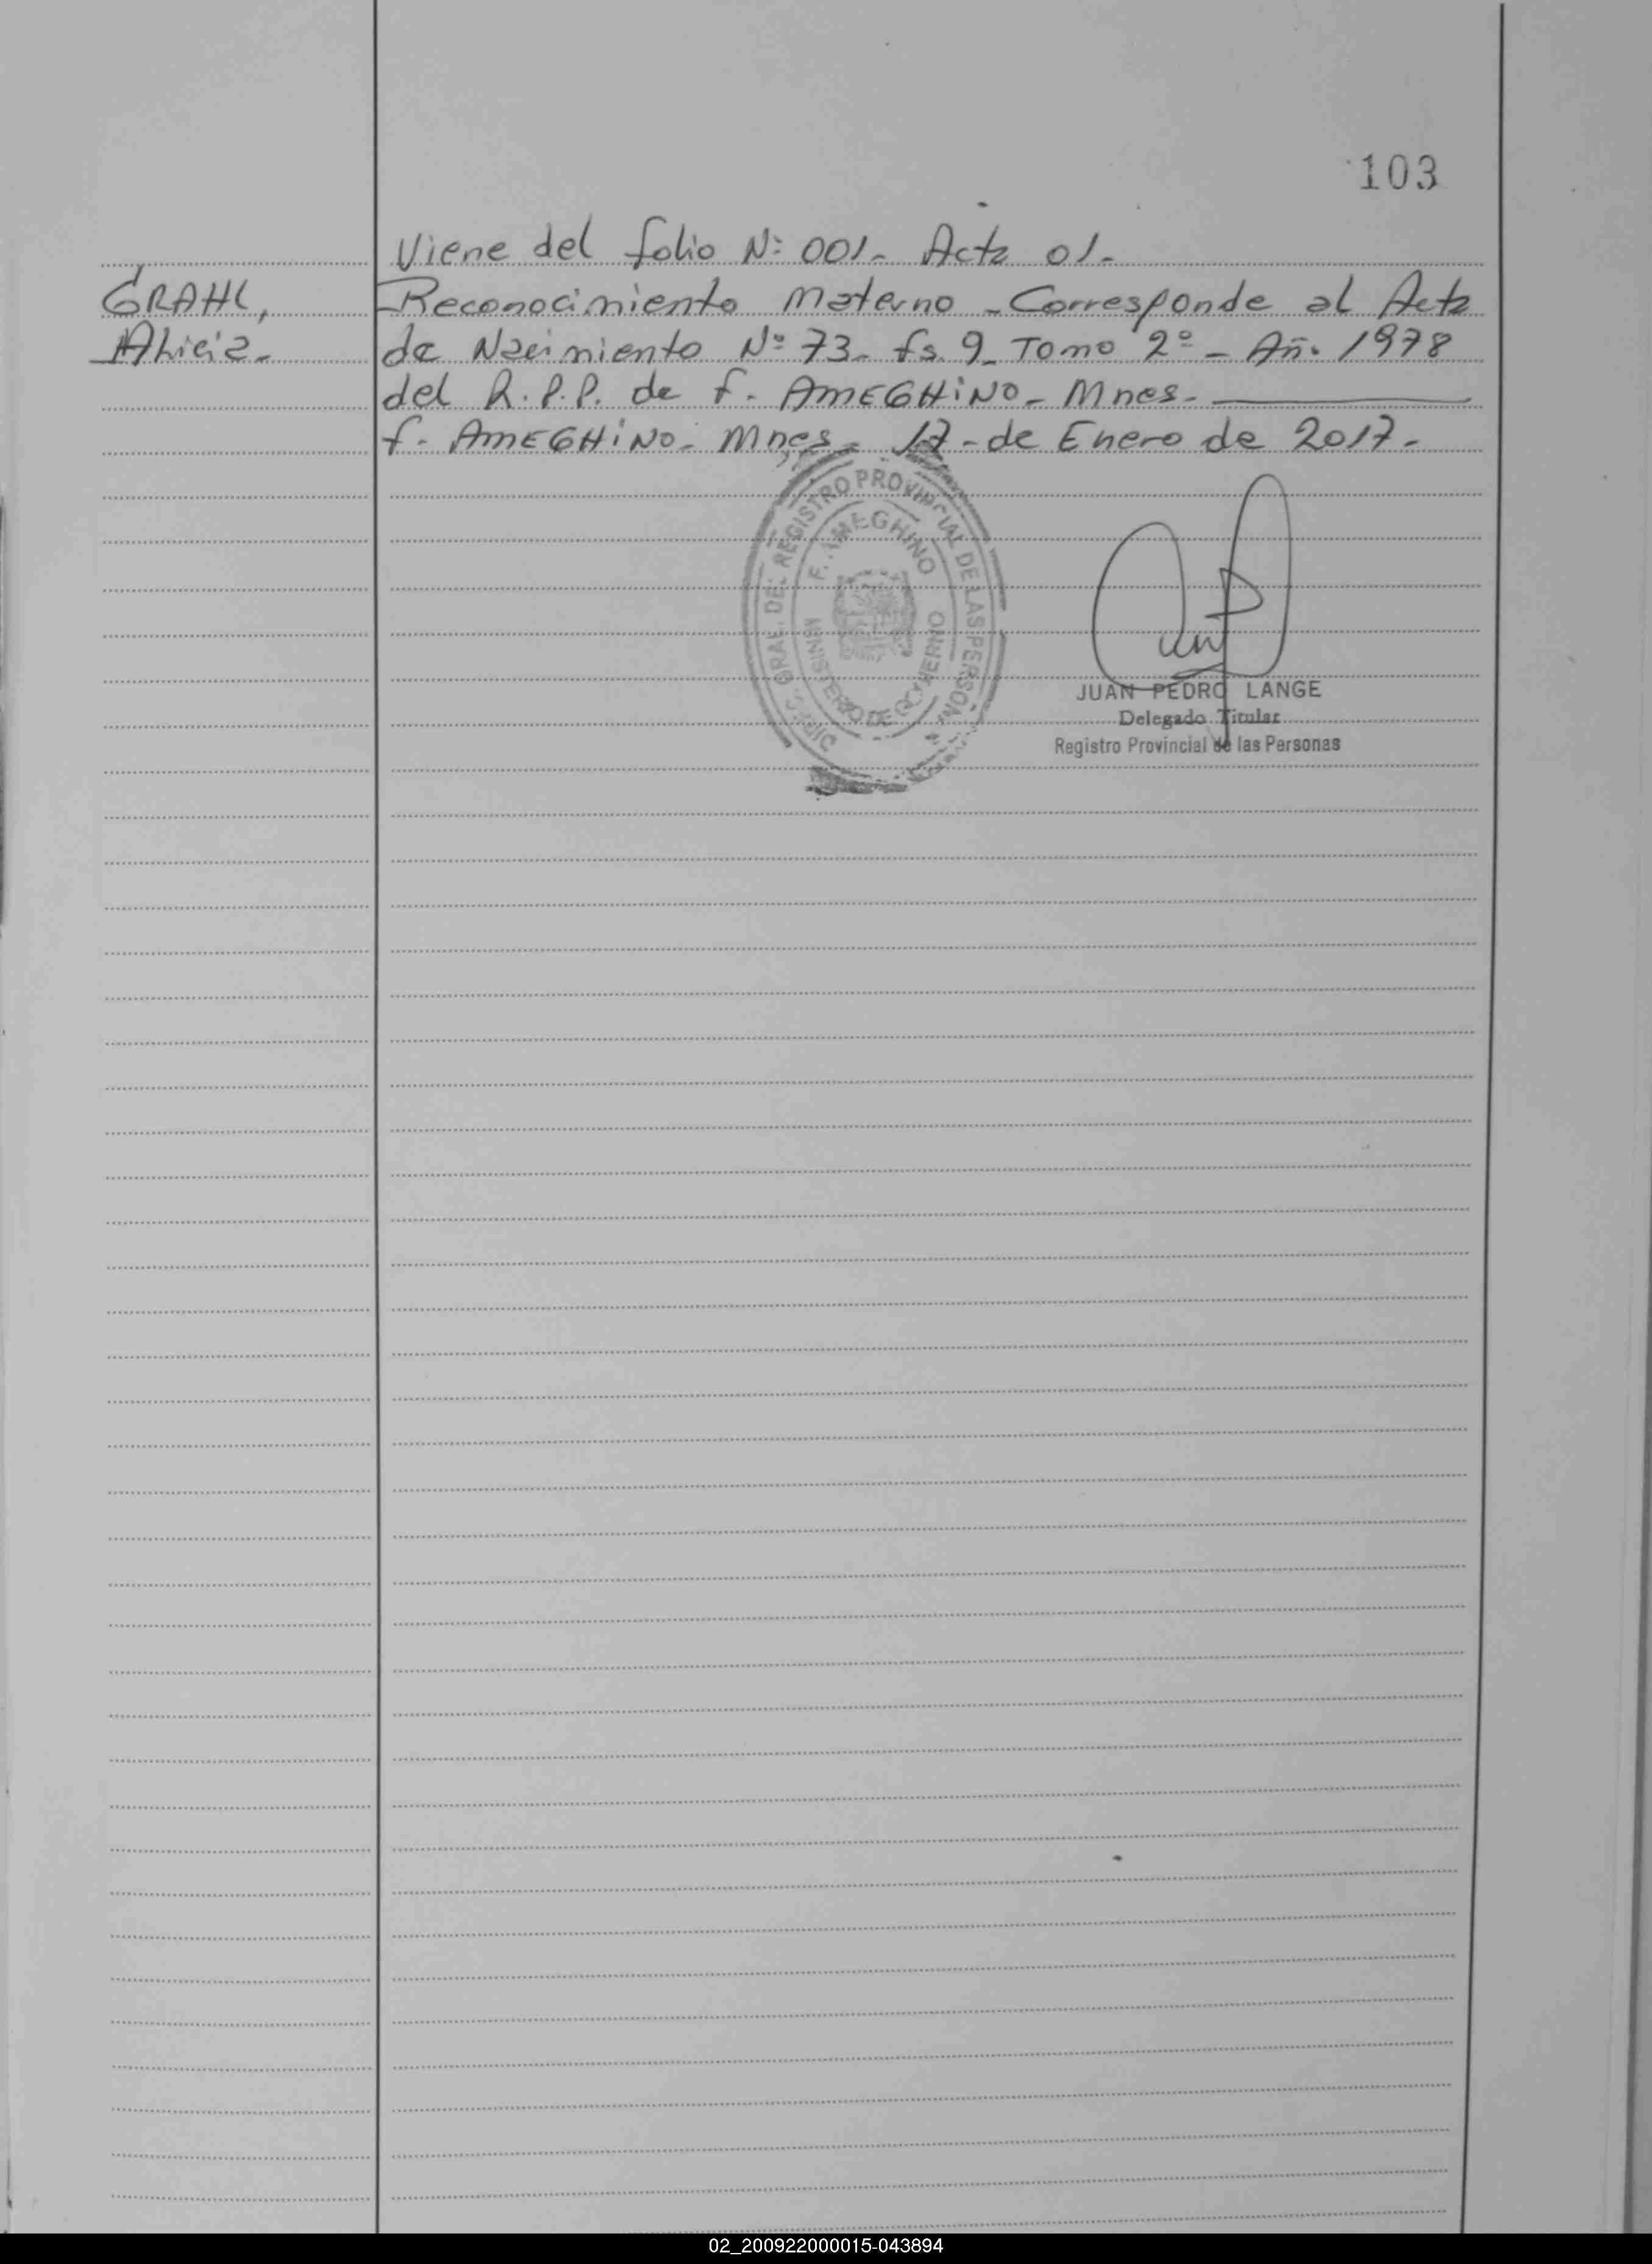 103
Viene del folio Nº 001- Acta 01-
GRAHL, Reconocimiento Materno - Corresponde al Acta
Alicia- de Nacimiento Nº 73- fs 9- Tomo 2º - Añ. 1978
del R.P.P. de f. AMEGHINO- Mnes-
f. AMEGHINO- Mnes- 17-de Enero de 2017-
DIREC. GRAL. DEL REGISTRO PROVINCIAL DE LAS PERSON
F. AMEGHINO
MINISTERIO DE GOBIERNO
JUAN PEDRO LANGE
Delegado Titular
Registro Provincial de las Personas
02_200922000015-043894